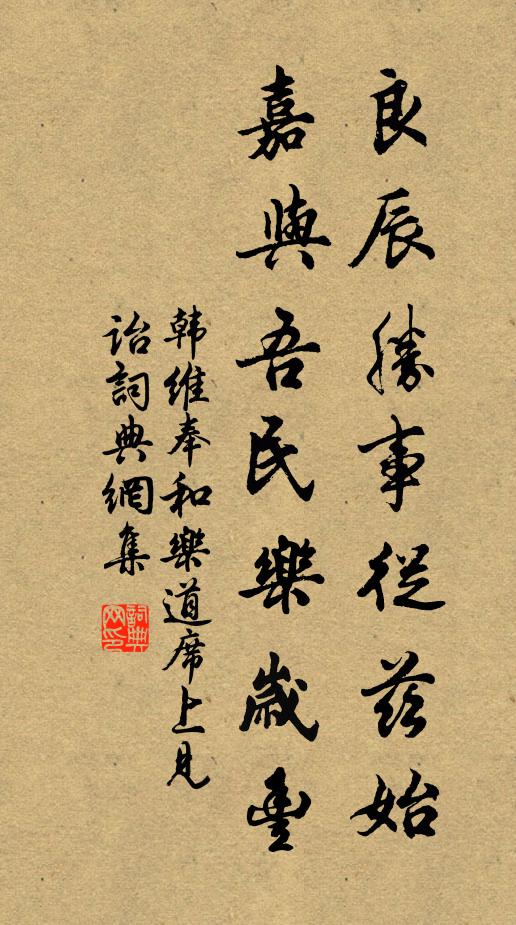 良辰勝事從茲始
嘉與吾民樂歲豐
韩維奉和樂道席上見
詒詞典網集
詞典
网印